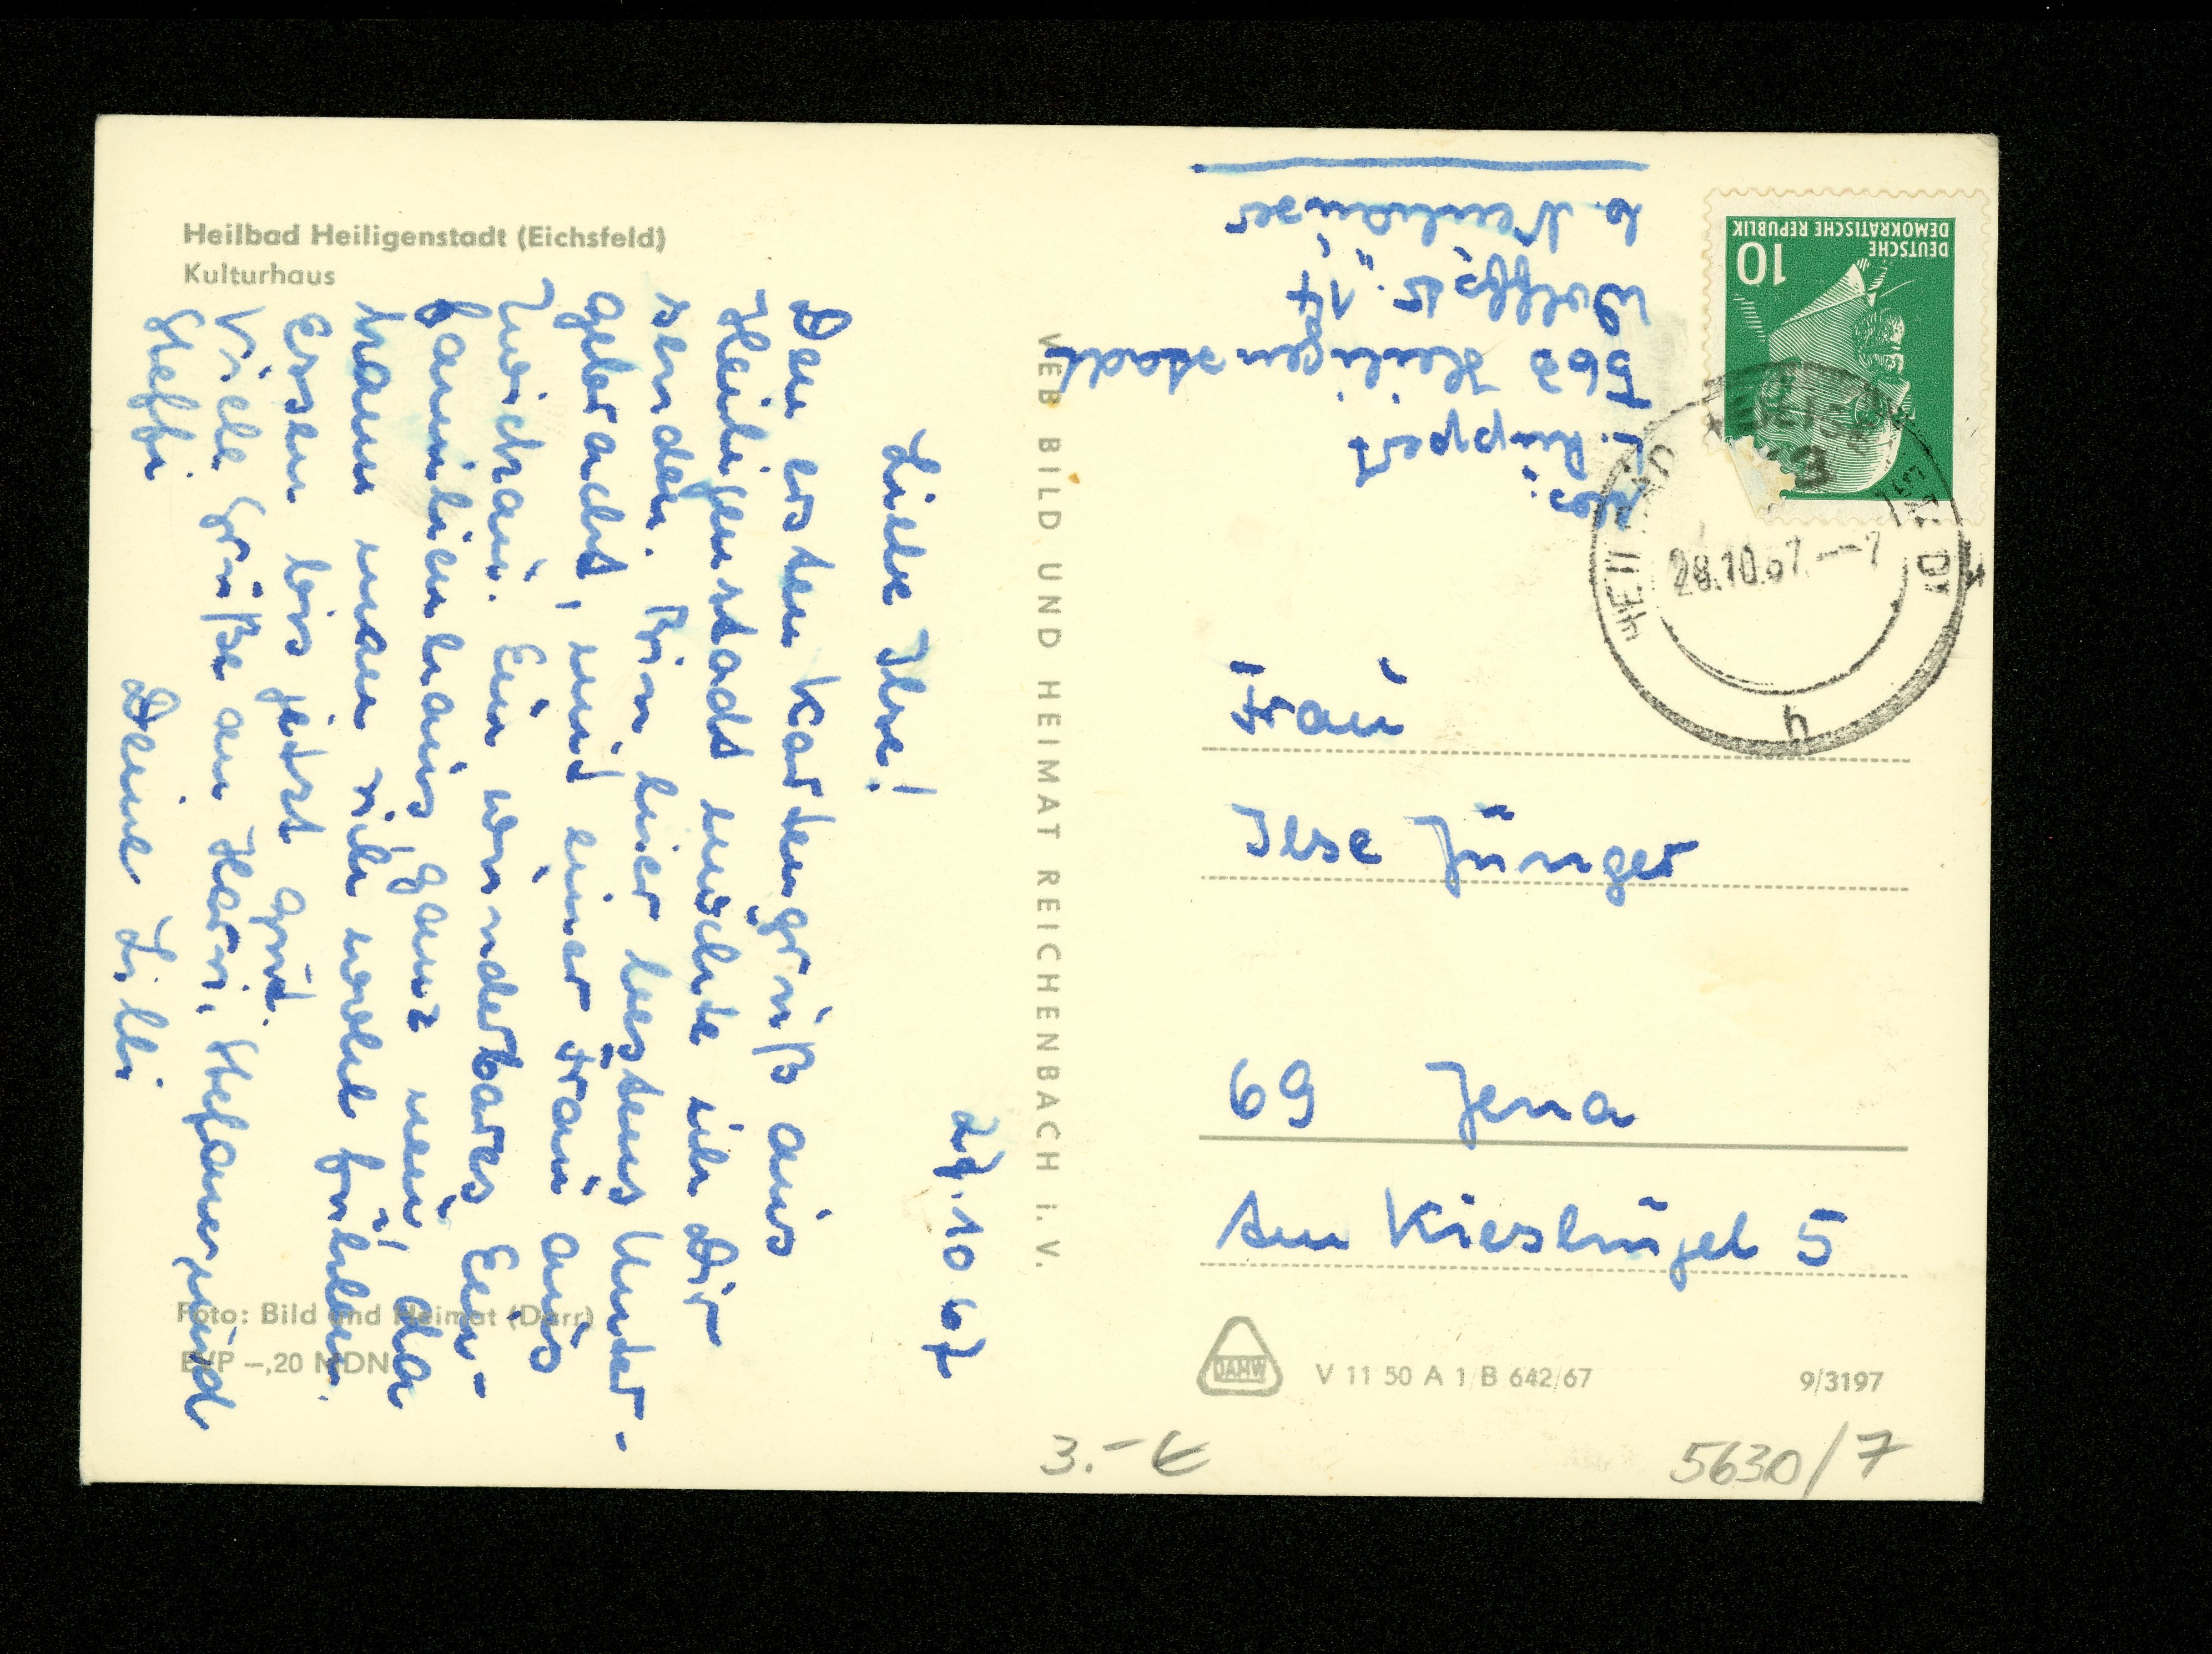 Heilbad Heiligenstadt (Eichsfeld)
Kulturhaus
27.10.67
Liebe Ilse!
Den ersten Kartengruß aus
Heiligenstadt möchte ich Dir
senden. Bin hier bestens unter-
gebracht, mit einer Frau aus
Zwickau. Ein wunderbares Ein-
familienhaus ganz neu, da
kann man sich wohl fühlen.
Essen bis jetzt gut.
Viele Grüße an Heavi, Stefan und
Steffi
Deine Lilli
Foto: Bild und Heimat (Darr)
EVP –,20 MDN
VEB BILD UND HEIMAT REICHENBACH i. V.
Abs.
L. Ruppert
563 Heiligenstadt
Wolffstr. 14
b. Neuhäuser
DEUTSCHE
DEMOKRATISCHE REPUBLIK
10
28.10.67
h
Frau
Ilse Jünger
69 Jena
Am Kieshügel 5
DAMW
V 11 50 A 1/B 642/67
9/3197
3.- €
5630/7